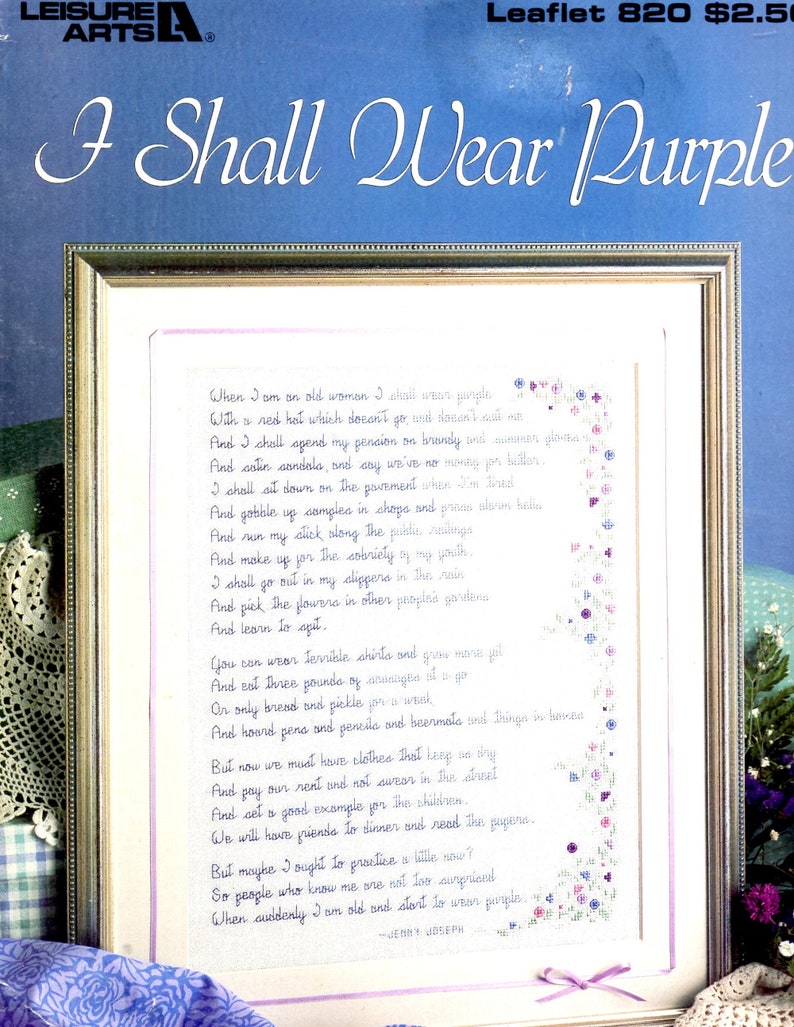 LEISURE
ARTS LA ®
Leaflet 820 $2.50
I Shall Wear Purple
When I am an old woman I shall wear purple
With a red hat which doesn't go, and doesn't suit me
And I shall spend my pension on brandy and summer gloves
And satin sandals, and say we've no money for butter.
I shall sit down on the pavement when I'm tired
And gobble up samples in shops and press alarm bells
And run my stick along the public railings
And make up for the sobriety of my youth.
I shall go out in my slippers in the rain
And pick the flowers in other people's gardens
And learn to spit.
You can wear terrible shirts and grow more fat
And eat three pounds of sausages at a go
Or only bread and pickle for a week
And hoard pens and pencils and beermats and things in boxes
But now we must have clothes that keep us dry
And pay our rent and not swear in the street
And set a good example for the children.
We will have friends to dinner and read the papers.
But maybe I ought to practice a little now?
So people who know me are not too surprised
When suddenly I am old and start to wear purple.
—JENNY JOSEPH